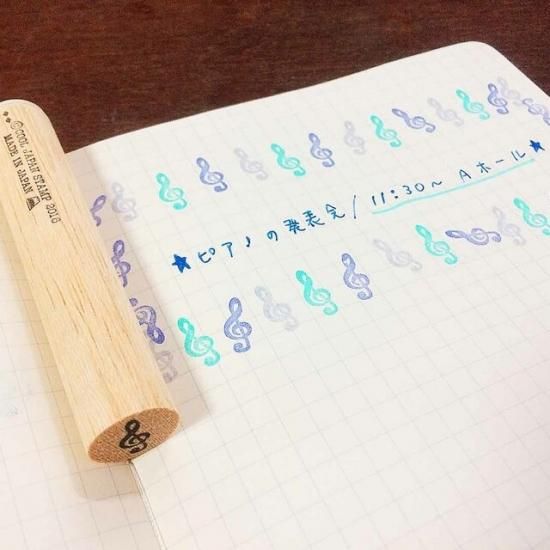 ©COOL JAPAN STAMP 2016
MADE IN JAPAN
★ピアノの発表会/11:30〜 Aホール★